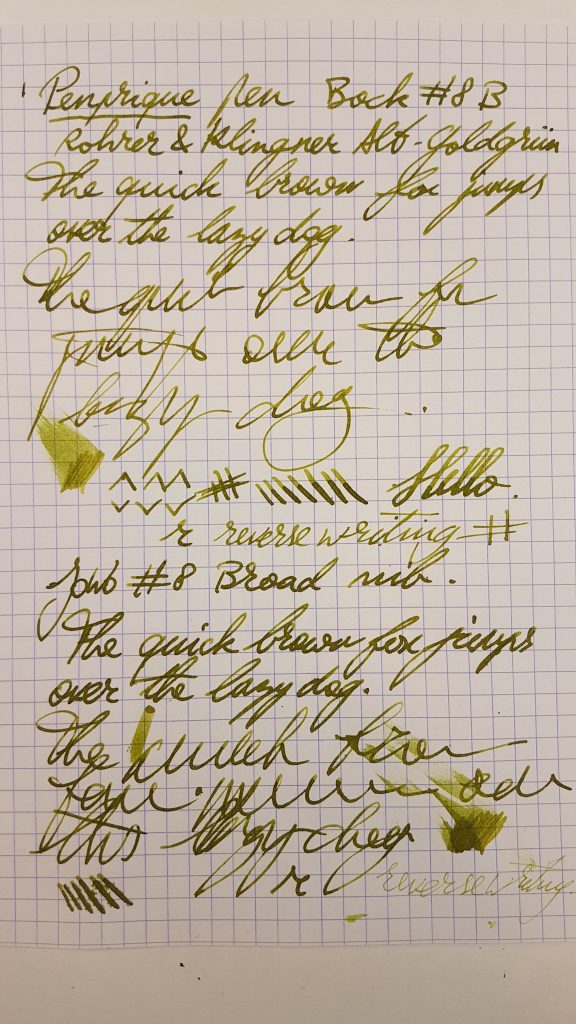 Penprique pen Bock #8 B
Rohrer & Klingner Alt-Goldgrün
The quick brown fox jumps
over the lazy dog.
The quick brown fox
jumps over the
lazy dog
# Hello.
r reverse writing #
Jowo #8 Broad nib.
The quick brown fox jumps
over the lazy dog.
The
this
r reverse writing